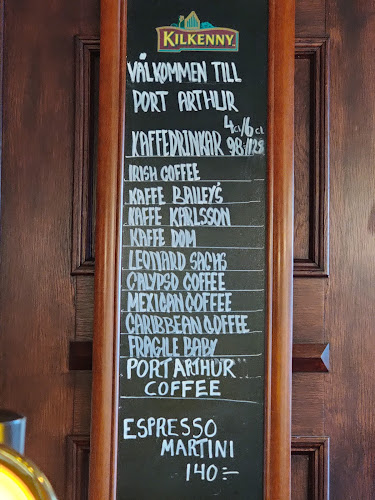 KILKENNY
VÄLKOMMEN TILL
PORT ARTHUR
4cl/6cl
KAFFEDRINKAR 98:-/128
IRISH COFFEE
KAFFE BAILEY'S
KAFFE KARLSSON
KAFFE DOM
LEONARD SACHS
CALYPSO COFFEE
MEXICAN COFFEE
CARIBBEAN COFFEE
FRAGILE BABY
PORT ARTHUR
COFFEE
ESPRESSO
MARTINI
140:-